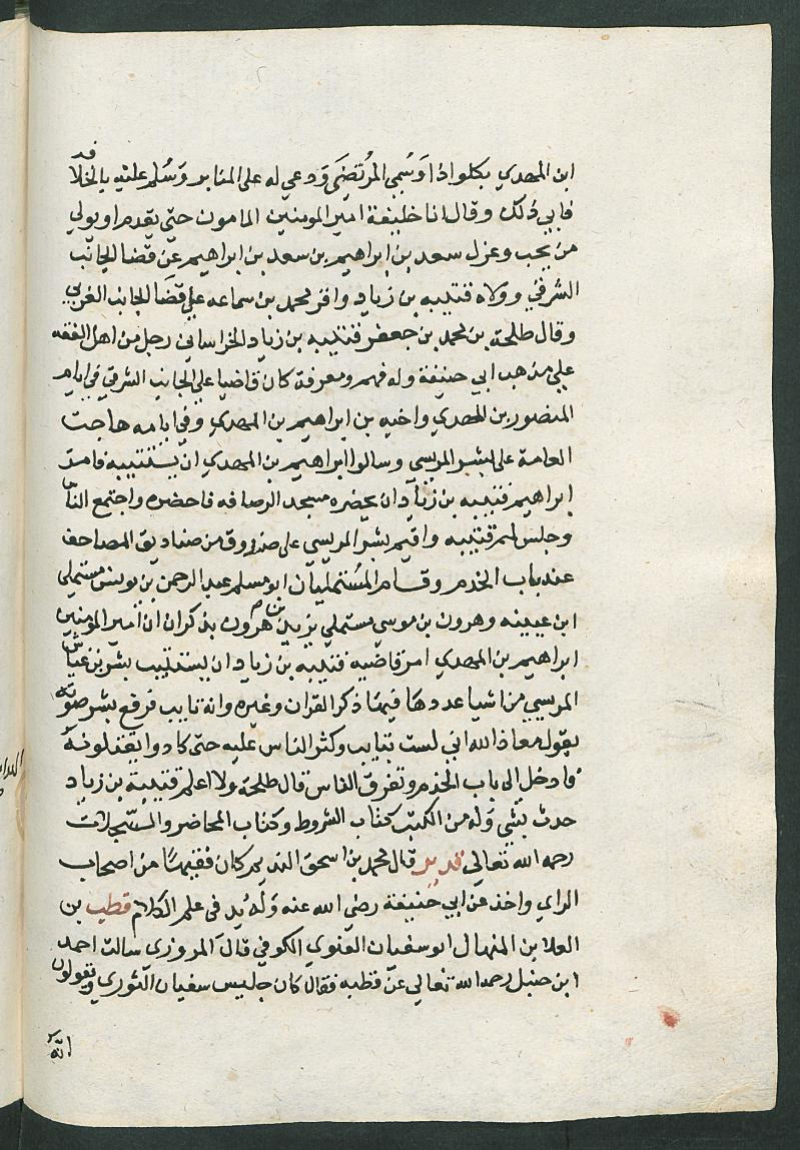 ابن المهدي بكلواذا وَسُمي المرُتضَي وَدعي له على المنابر وَسُلم عليه بالخلافه
فابي ذلك وقال انا خليفة امير المومنين المامون حتي يقدم او يولي
من يحب وعزل سعد بن ابراهيم بن سعد بن ابراهيم عن قضا الجانب
الشرقي وولاه قتيبه بن زياد واقر محمد بن سماعه علي قضا الجانب الغربي
وقال طلحة بن محمد بن جعفر قتيبه بن زياد الخراساني رجل من اهل الفقه
علي مذهب ابي حنيفة وله فهم ومعرفة كان قاضيا علي الجانب الشرقي في ايام
المنصور بن المهدي واخيه بن ابراهيم بن المهدي وفي ايامه هاجت
العامة على بشر المريسي وسالوا ابراهيم بن المهدي ان يستتيبه فامر
ابراهيم قتيبه بن زياد ان يحضره مسجد الرصافه فاحضره واجتمع الناس
وجلس لهم قتيبه واقيم بشر المريسي على صندوق من صناديق المصاحف
عند باب الخدم وقام المُستمليان ابو مسلم عبد الرحمن بن يونس مستملي
ابن عيينه وهرون بن موسي مستملي يزيد بن هرون يذكران ان امير المومنين
ابراهيم بن المهدي امر قاضيه قتيبه بن زياد ان يستتيب بشر بن غياث
المريسي من اشيا عددها فيها ذكر القران وغيره وانه تايب فرفع بشر صوته
يقول معاذ الله اني لست بتايب وكثر الناس عليه حتى كادوا يقتلونه
فادخل الي باب الخدم وتفرق الناس قال طلحة ولا اعلم قتيبة بن زياد
حدث بشي وله من الكتب كتاب الشروط وكتاب المحاضر والسّجلات
رحمه الله تعالي قديد قال محمد بن اسحق النديم كان فقيها من اصحاب
الراي واخذ عن ابي حنيفة رضي الله عنه وَلَهُ يد في علم الكلام قطب بن
العلا بن المنهال ابو سفيان الغنوي الكوفي قال المروزي سالت احمد
ابن حنبل رحمه الله تعالي عن قطبه فقال كان جليس سفيان الثوري ويقولون
انه